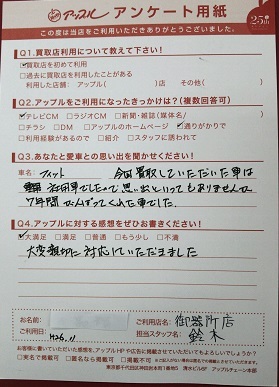 アップル アンケート用紙
この度は当店をご利用いただきありがとうございました。
Q1.買取店利用について教えて下さい!
☑買取店を初めて利用
□過去に買取を利用したことがある
利用した店舗: アップル( )店 その他( )
Q2.アップルをご利用になったきっかけは?(複数回答可)
☑テレビCM □ラジオCM □新聞・雑誌(媒体名/ )
□チラシ □DM □アップルのホームページ ☑通りがかりで
□利用経験があるので □紹介 □スタッフに誘われて
Q3.あなたと愛車との思い出を聞かせてください!
車名: フィット 今回買取していただいた車は
社用車でしたので思い出といってもありませんが
7年間がんばってくれた車でした。
Q4.アップルに対する感想をぜひお書きください!
☑大満足 □満足 □普通 □もう少し □不満
大変親切に対応していただきました
お名前:
ご利用日: H26.11
ご利用店名: 御器所店
担当者: 鈴木
お客様に書いていただいた感想を、アップルHPや広告に掲載させていただいてもよろしいでしょうか?
□実名で掲載可 □匿名なら掲載可 □掲載不可
東京都千代田区神田司町1番地5 清水ビル5F アップルチェーン本部